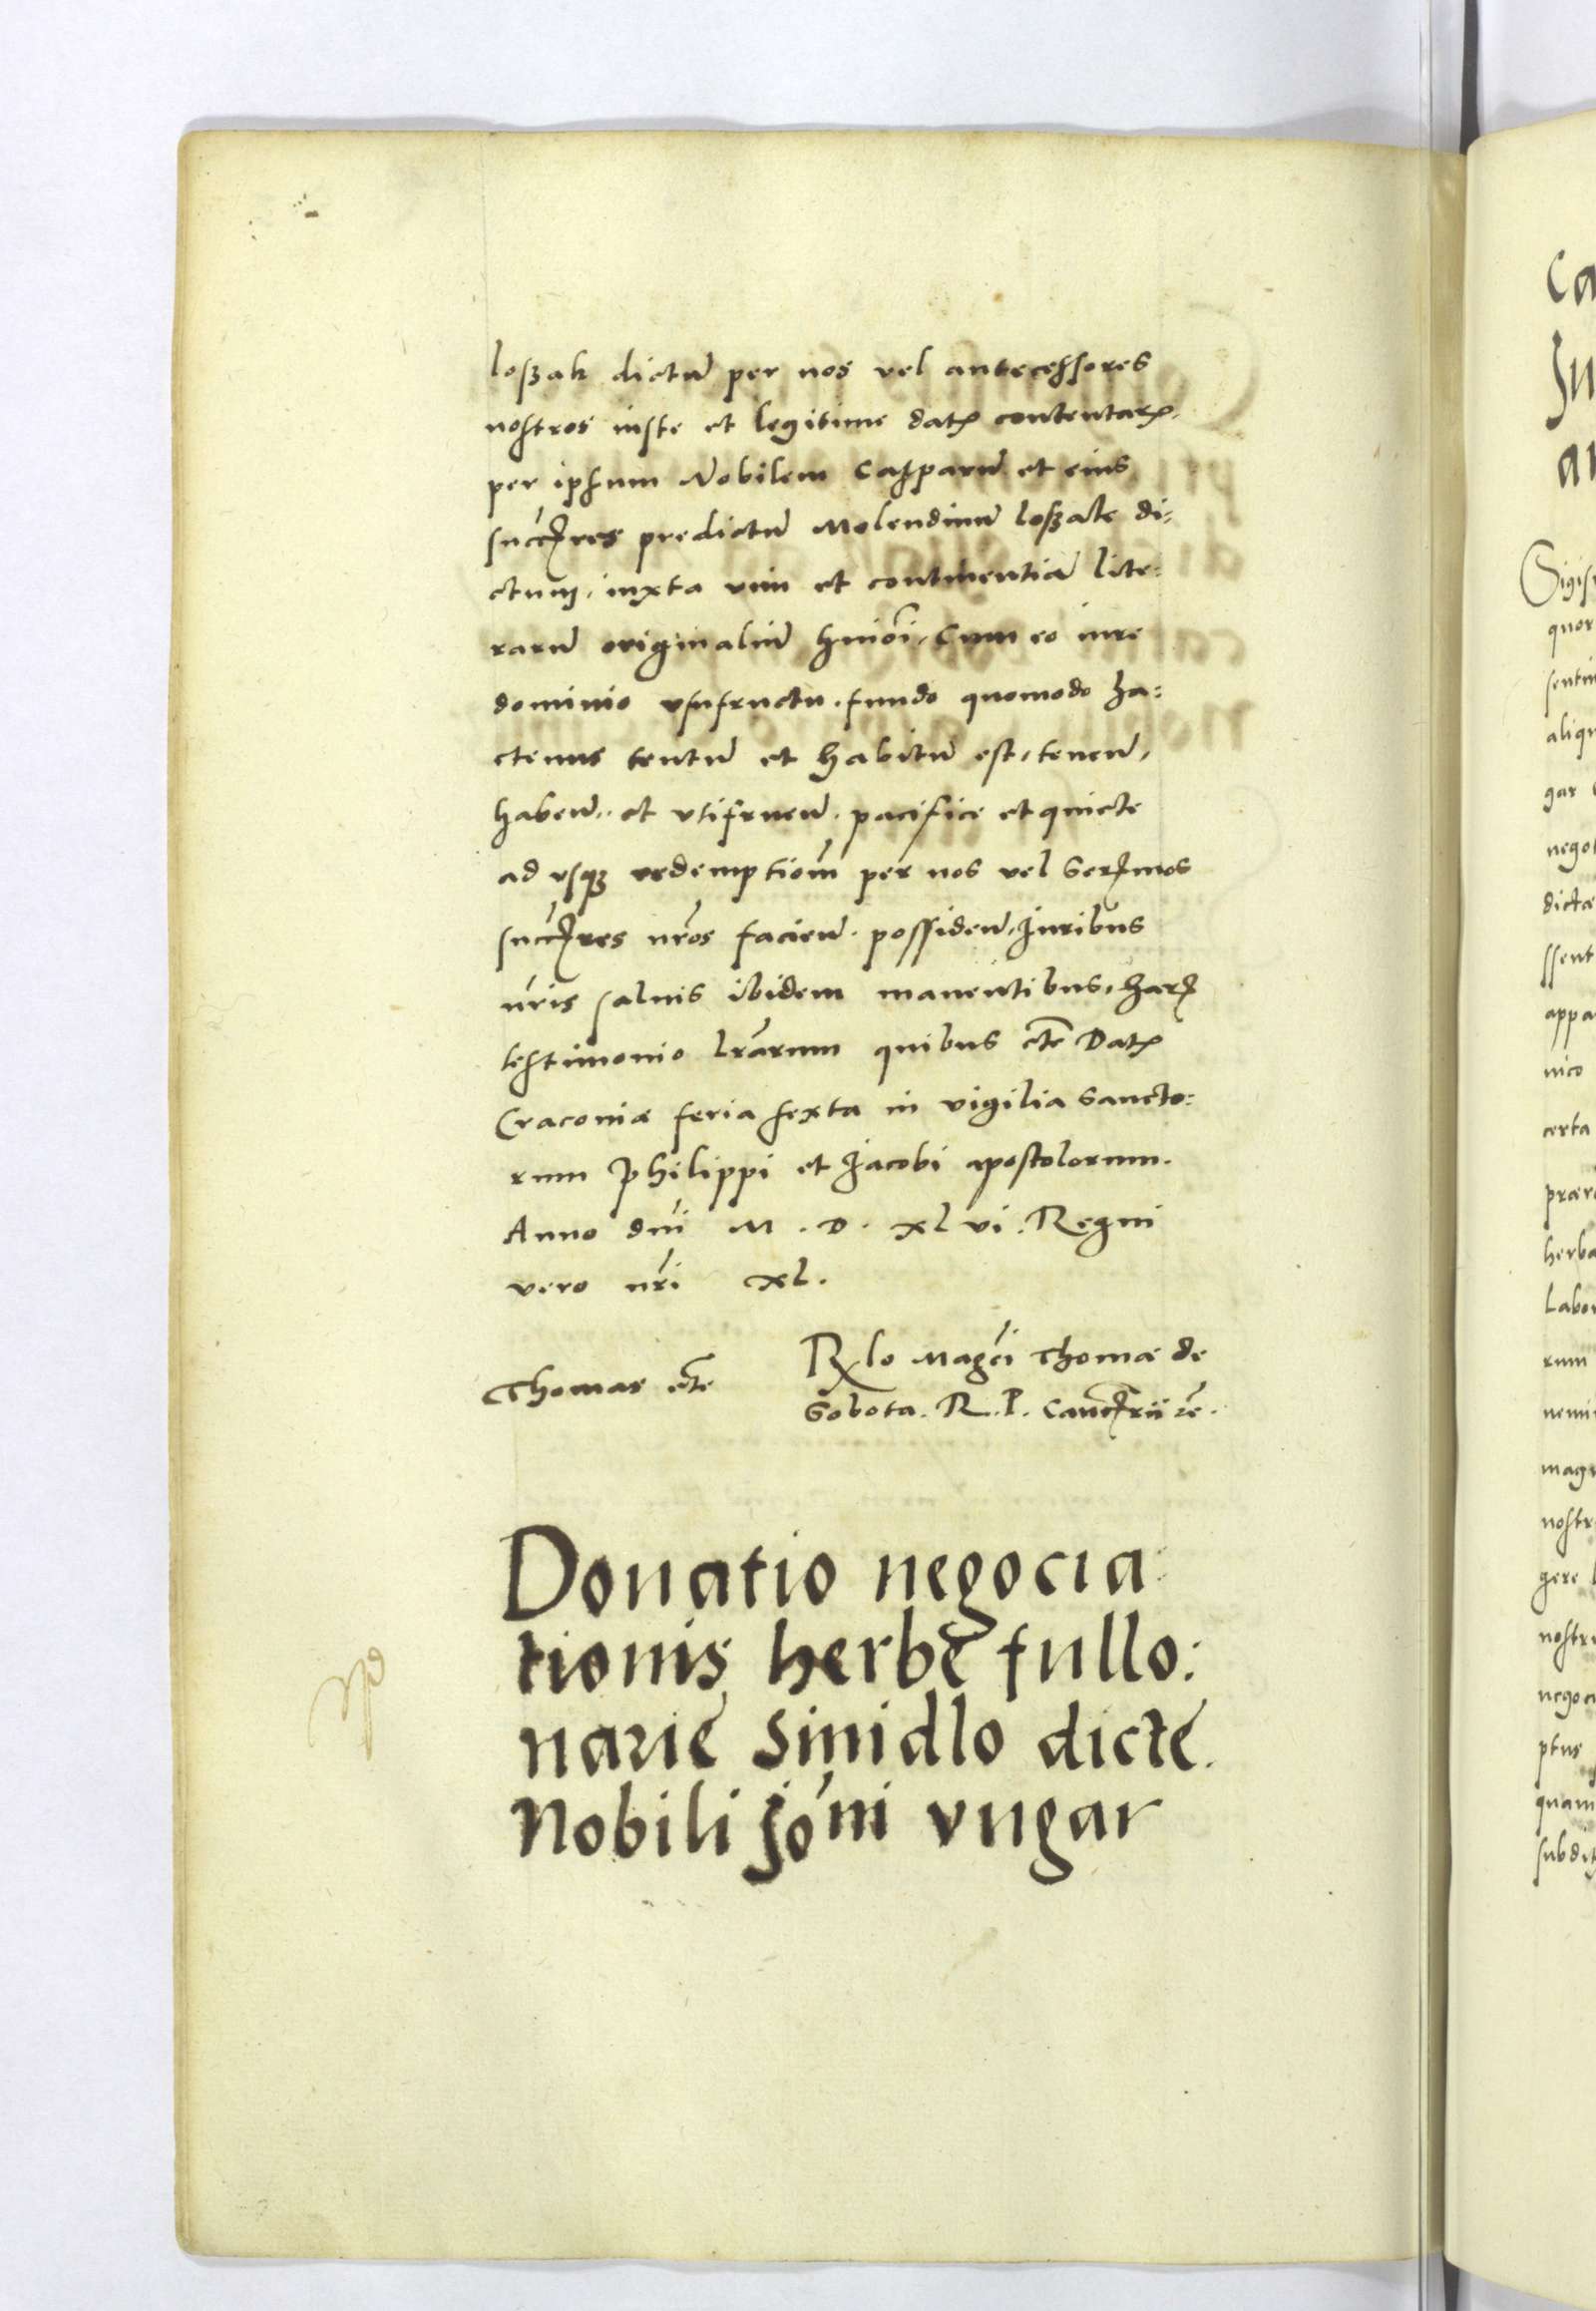 loßak dictū per nos vel antecessores
nostros iuste et legitime datꝝ contentarꝝ.
per ipsum Nobilem Casparū et eius
succꝛes predictū Molendinū loßak di:
ctum, iuxta vim et continentiā lite:
rarū originaliū hmōi, Cum eo iure
dominio vsufructu. fundo quomodo ha:
ctenus tentū et habitū est, teneñ,
habeñ. et vtifrueñ. pacifice et quiete
ad vsqȝ redemptioñ per nos vel Serꝫmos
succꝛes nr̄os facieñ. possideñ, Iuribus
nr̄is saluis ibidem manentibus, harꝝ
testimonio lr̄arum quibus etc̄ Datꝝ
Cracoviæ feria sexta in vigilia Sancto:
rum Philippi et Jacobi apostolorum.
Anno dn̄i M. D. xlvi. Regni
vero nr̄i xl.
Thomas etc̄
Rlo Magc̄i Thomæ de
Sobota. R. P. Cancꝛii rc̄.
Donatio negocia:
tionis herbę fullo:
narię Sinidlo dictę.
Nobili Jōni vngar
Ca
Ju
Sigis
quor
sentin
aliqu
gar
negot
dictæ
ssent
appa
nico
certa
præ
herba
Labor
rum
nemi
magn
nostr
gere
nostr
negoc
ptus
quam
subdit